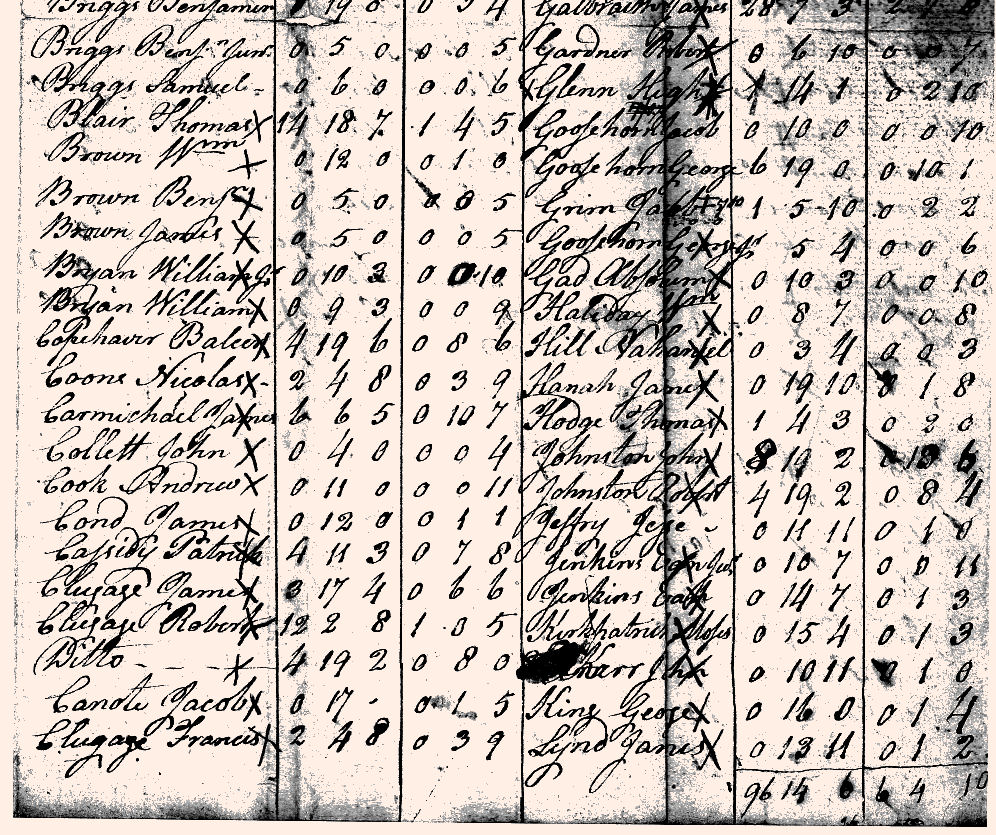 Briggs Benjamin 19 8 0 3 4
Briggs Benj. Junr 0 5 0 0 0 5
Briggs Samuel - 0 6 0 0 0 6
Blair Thomas X 14 18 7 1 4 5
Brown Wm X 0 12 0 0 1 0
Brown Benj X 0 5 0 0 0 5
Brown James X 0 5 0 0 0 5
Bryan William Jr X 0 10 3 0 0 10
Bryan William X 0 9 3 0 0 9
Copehaver X 4 19 6 0 8 6
Coons Nicolas X - 2 4 8 0 3 9
Carmichael James X 6 6 5 0 10 7
Collett John X 0 4 0 0 0 4
Cook Andrew X 0 11 0 0 0 11
Cond James X 0 12 0 0 1 1
Cassidy Patrick X 4 11 3 0 7 8
Clugage James X 3 17 4 0 6 6
Clugage Robert X 12 2 8 1 0 5
Ditto - - - X 4 19 2 0 8 0
Canote Jacob X 0 17 - 0 1 5
Clugage Francis X 2 4 8 0 3 9
Galbraith James X 28 7 3
Gardner Robert X 0 6 10 0 0 7
Glenn Hugh X 14 1 0 2 10
Goosehorn Jacob 0 10 0 0 0 10
Goosehorn George 6 19 0 0 10 1
Grim 1 5 10 0 2 2
Goosehorn George Jr 5 4 0 0 6
Gad Absolum X 0 10 3 0 0 10
Haliday Wm X 0 8 7 0 0 8
Hill Nathaniel X 0 3 4 0 0 3
Hanah Jane X 0 19 10 0 1 8
Hodge Thomas X 1 4 3 0 2 0
Johnston John X 8 19 2 0 6
Johnston Robert X 4 19 2 0 8 4
Jeffry Jese - 0 11 11 0 1 0
Jenkins X 0 10 7 0 0 11
Jenkins X 0 14 7 0 1 3
Kirkpatrick Moses X 0 15 4 0 1 3
Karr Jhn X 0 10 11 0 1 0
King George X 0 16 0 0 1 4
Lynd James X 0 13 11 0 1 2
96 14 6 6 4 10